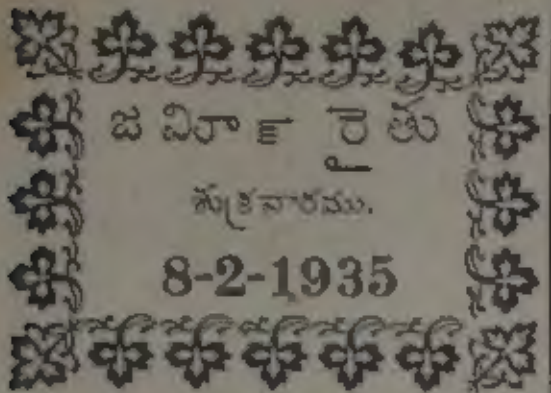 జమీౝ రైతు
శుక్రవారము.
8-2-1935